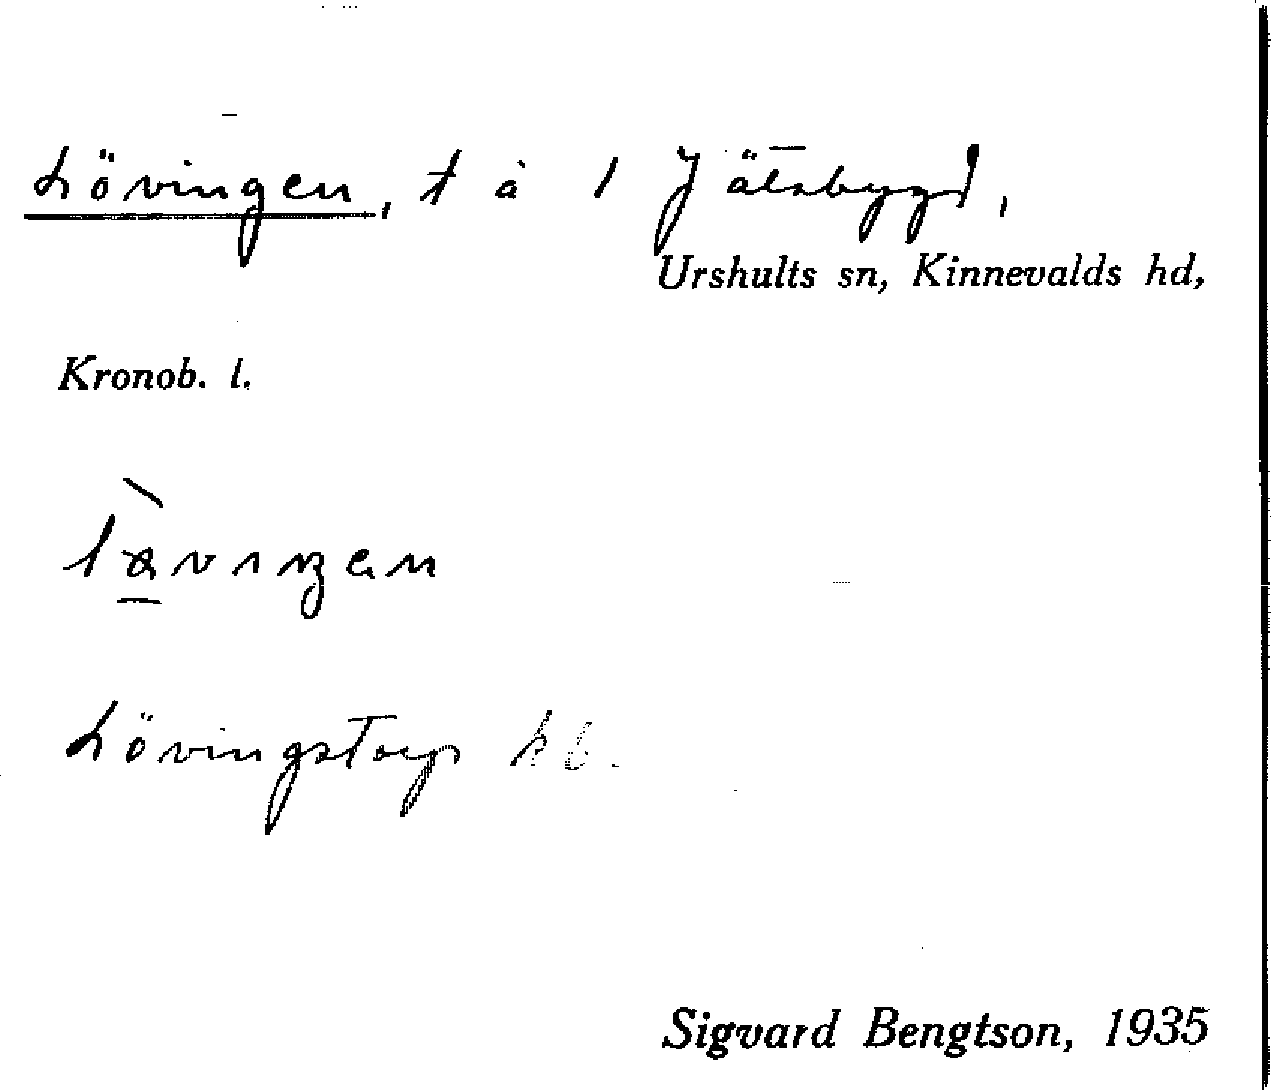 Lövingen, t å 1 Jätsbygd,
Urshults sn, Kinnevalds hd,
Kronob. l.
Lövingstorp kb.
Sigvard Bengtson, 1935